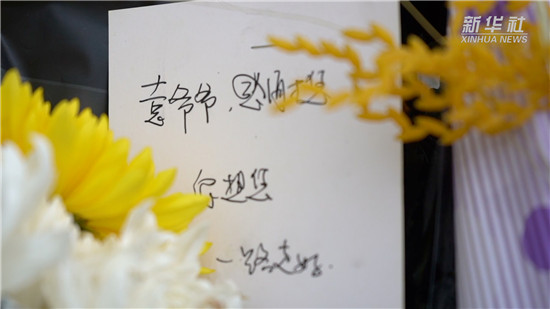 新华社
XINHUA NEWS
袁爷爷，感谢您
想您
一路走好